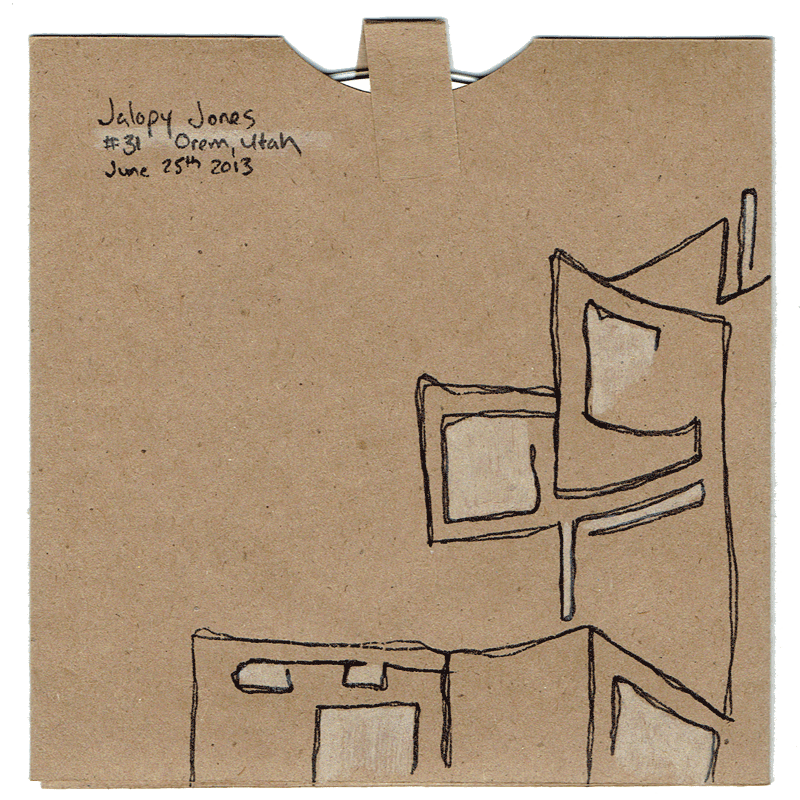 Jalopy Jones
#31 Orem, Utah
June 25th 2013